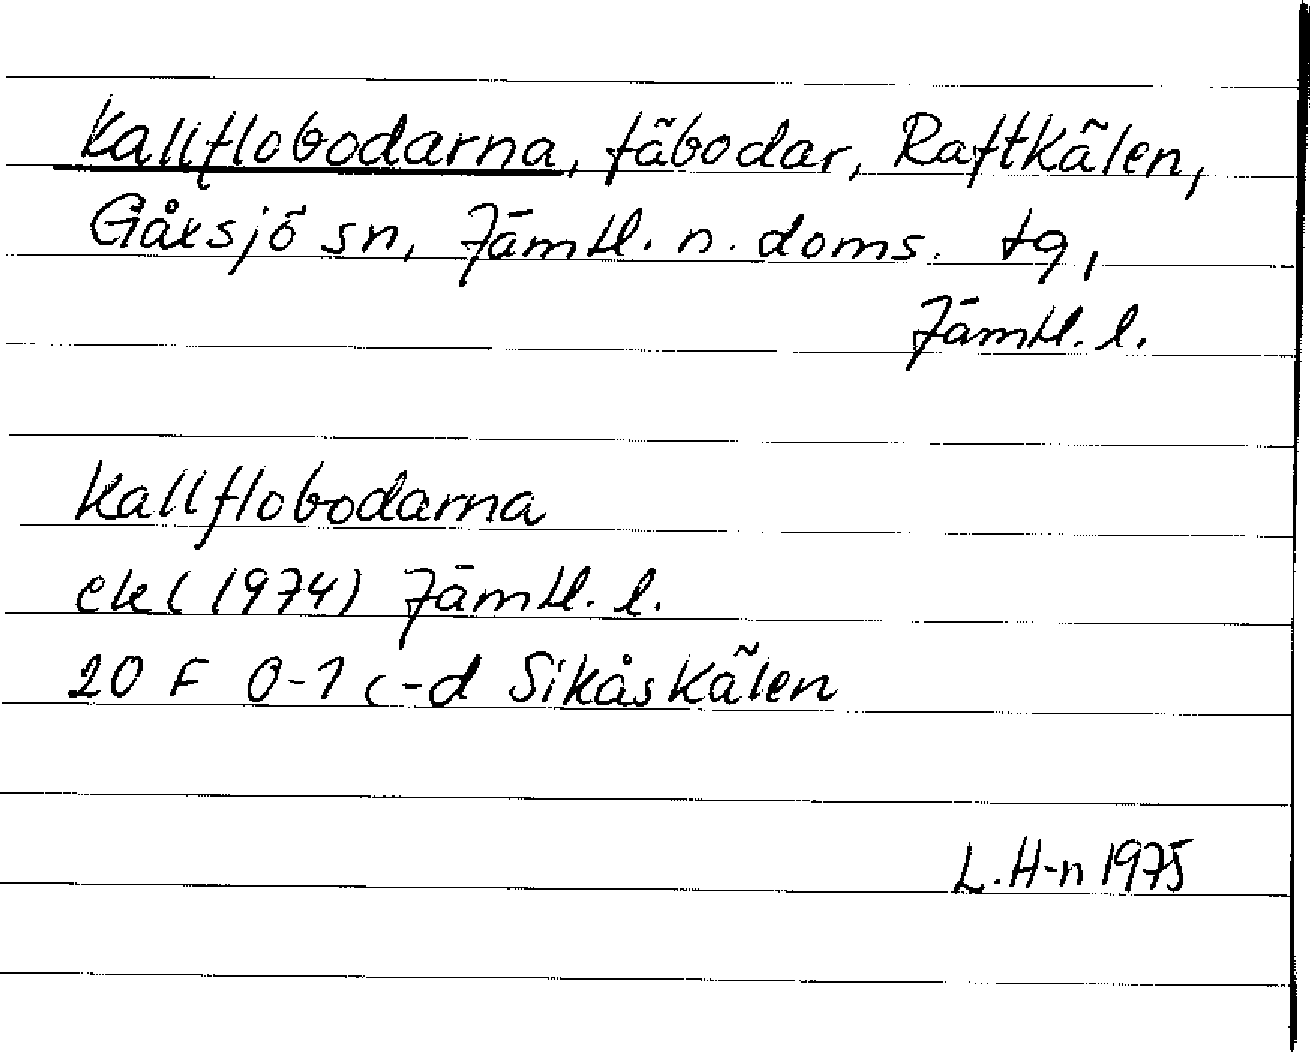 Kallflobodarna, fäbodar, Raftkälen,
Gåxsjö sn, Jämtl. n. doms. tg,
Jämtl. l.
Kallflobodarna
ek (1974) Jämtl. l.
20 F 0-1 c-d Sikåskälen
L. H-n 1975